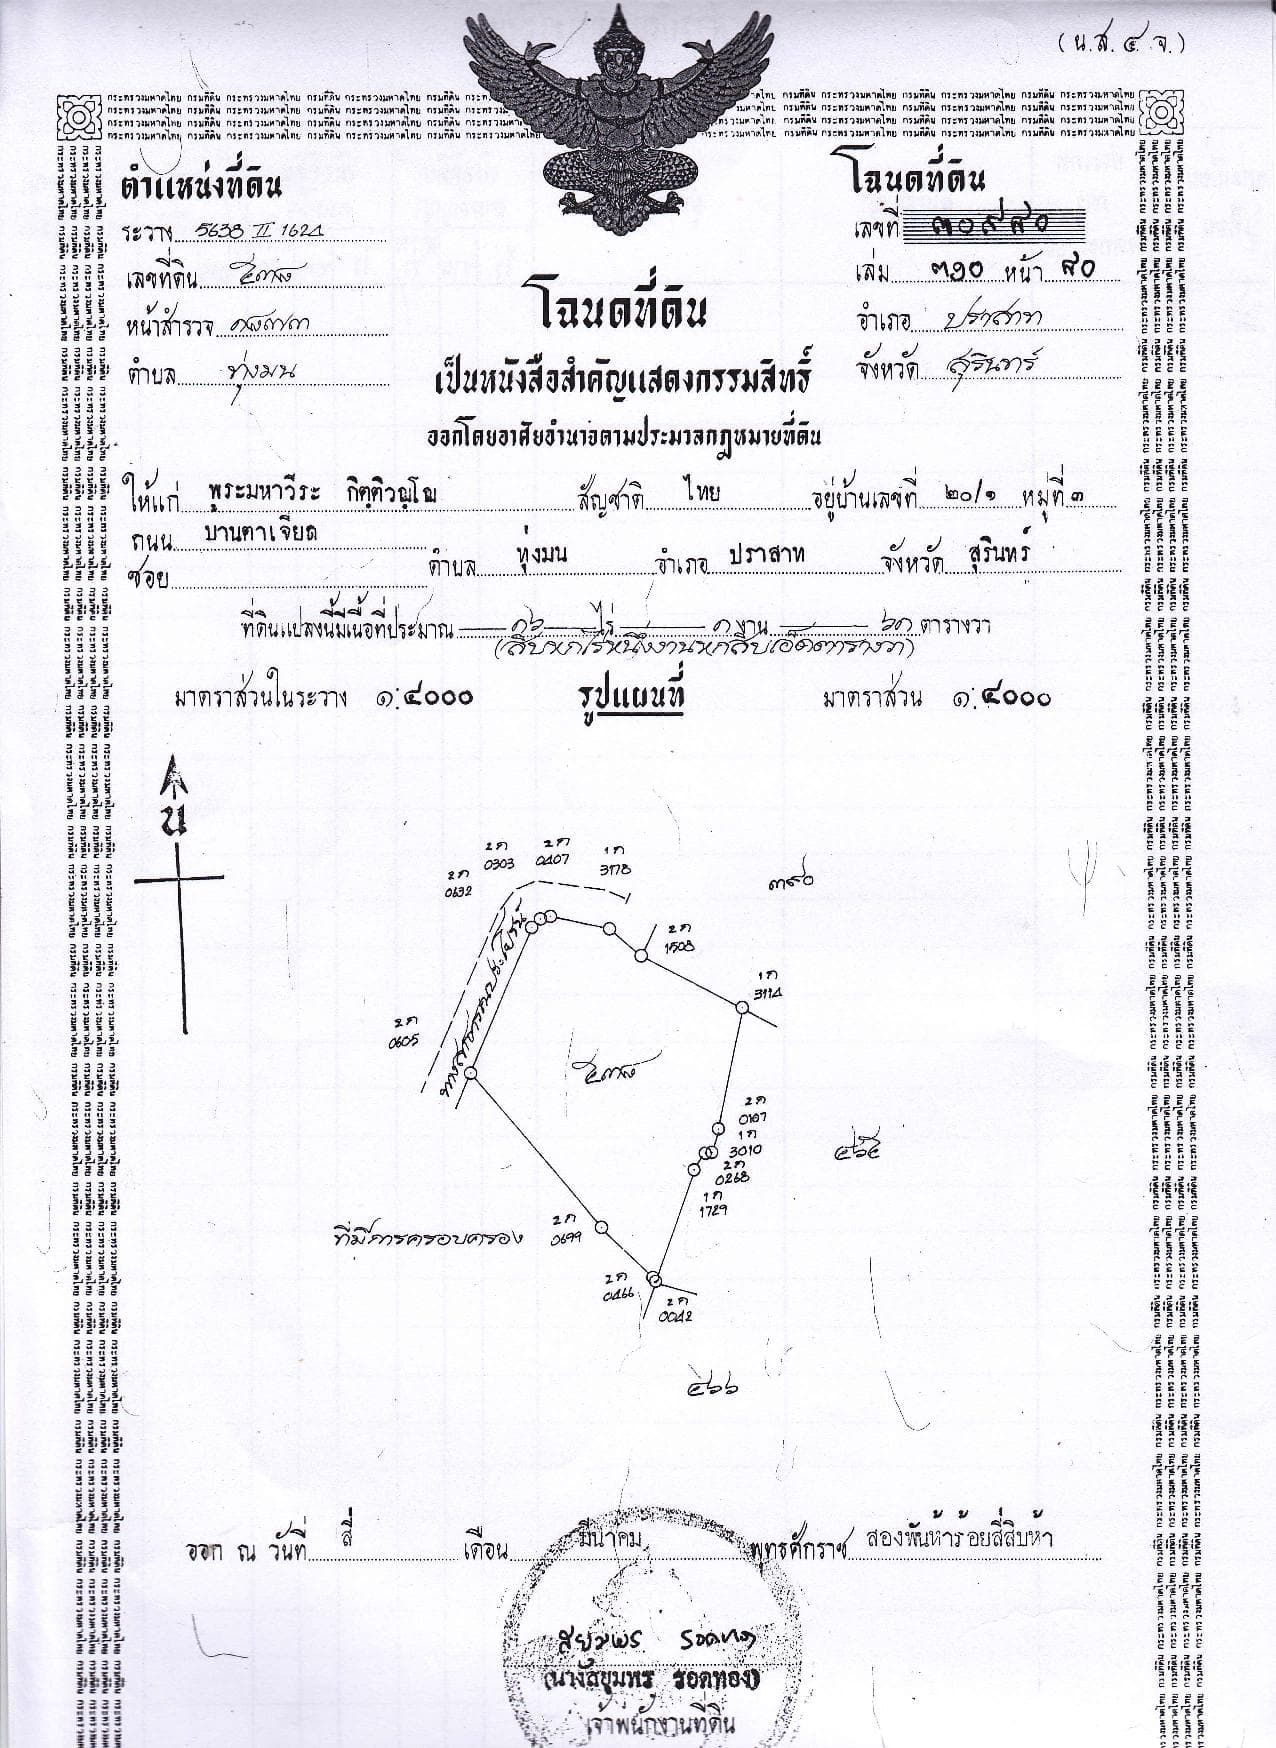 (น.ส.๔ จ.)
กระทรวงมหาดไทย กรมที่ดิน กระทรวงมหาดไทย กรมที่ดิน กระทรวงมหาดไทย กรมที่ดิน กระทรวงมหาดไทย กรมที่ดิน
ตำแหน่งที่ดิน
ระวาง 5638 II 1624
เลขที่ดิน
หน้าสำรวจ
ตำบล ทุ่งมน
โฉนดที่ดิน
เลขที่ ๓๐๙๘๐
เล่ม ๓๑๐ หน้า ๘๐
อำเภอ ปราสาท
จังหวัด สุรินทร์
โฉนดที่ดิน
เป็นหนังสือสำคัญแสดงกรรมสิทธิ์
ออกโดยอาศัยอำนาจตามประมวลกฎหมายที่ดิน
ให้แก่ พระมหาวีระ กิตฺติวณฺโณ สัญชาติ ไทย อยู่บ้านเลขที่ ๒๐/๑ หมู่ที่ ๓
ถนน บานตาเจียด
ซอย ตำบล ทุ่งมน อำเภอ ปราสาท จังหวัด สุรินทร์
ที่ดินแปลงนี้มีเนื้อที่ประมาณ ๑๖ ไร่ ๑ งาน ๖๑ ตารางวา
(สิบหกไร่หนึ่งงานหกสิบเอ็ดตารางวา)
มาตราส่วนในระวาง ๑:๔๐๐๐ รูปแผนที่ มาตราส่วน ๑:๔๐๐๐
น
2ก 0632
2ก 0303
2ก 0407
1ก 3178
๓๙๐
2ก 1508
1ก 3114
2ก 0605
ทางสาธารณประโยชน์
2ก 0167
1ก 3010
2ก 0268
1ก 1729
๔๖๕
ที่มีการครอบครอง
2ก 0699
2ก 0466
2ก 0042
๔๖๖
ออก ณ วันที่ สี่ เดือน มีนาคม พุทธศักราช สองพันห้าร้อยสี่สิบห้า
สยุมพร รอดทอง
(นางสยุมพร รอดทอง)
เจ้าพนักงานที่ดิน